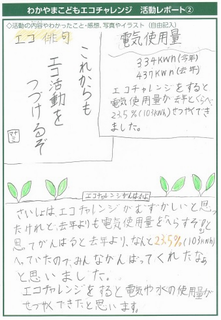 わかやまこどもエコチャレンジ 活動レポート②
◇活動の内容やわかったこと・感想、写真やイラスト (自由記入)
エコ俳句
これからも
エコ活動を
つづけるぞ
電気使用量
334KWh(今年)
437KWh(去年)
エコチャレンジをすると
電気使用量が去年とくらべて
23.5%(103KWh)せつやくで
きました。
エコチャレンジをがんばって
さいしょはエコチャレンジがむずかしいと思
ったけれど、去年よりも電気使用量をへらすぞと
思ってがんばると去年より、なんと23.5%(103KWh)
へっていたので、みんながんばってくれたなあ
と思いました。
エコチャレンジをすると電気や水の使用量が
せつやくできたと思います。